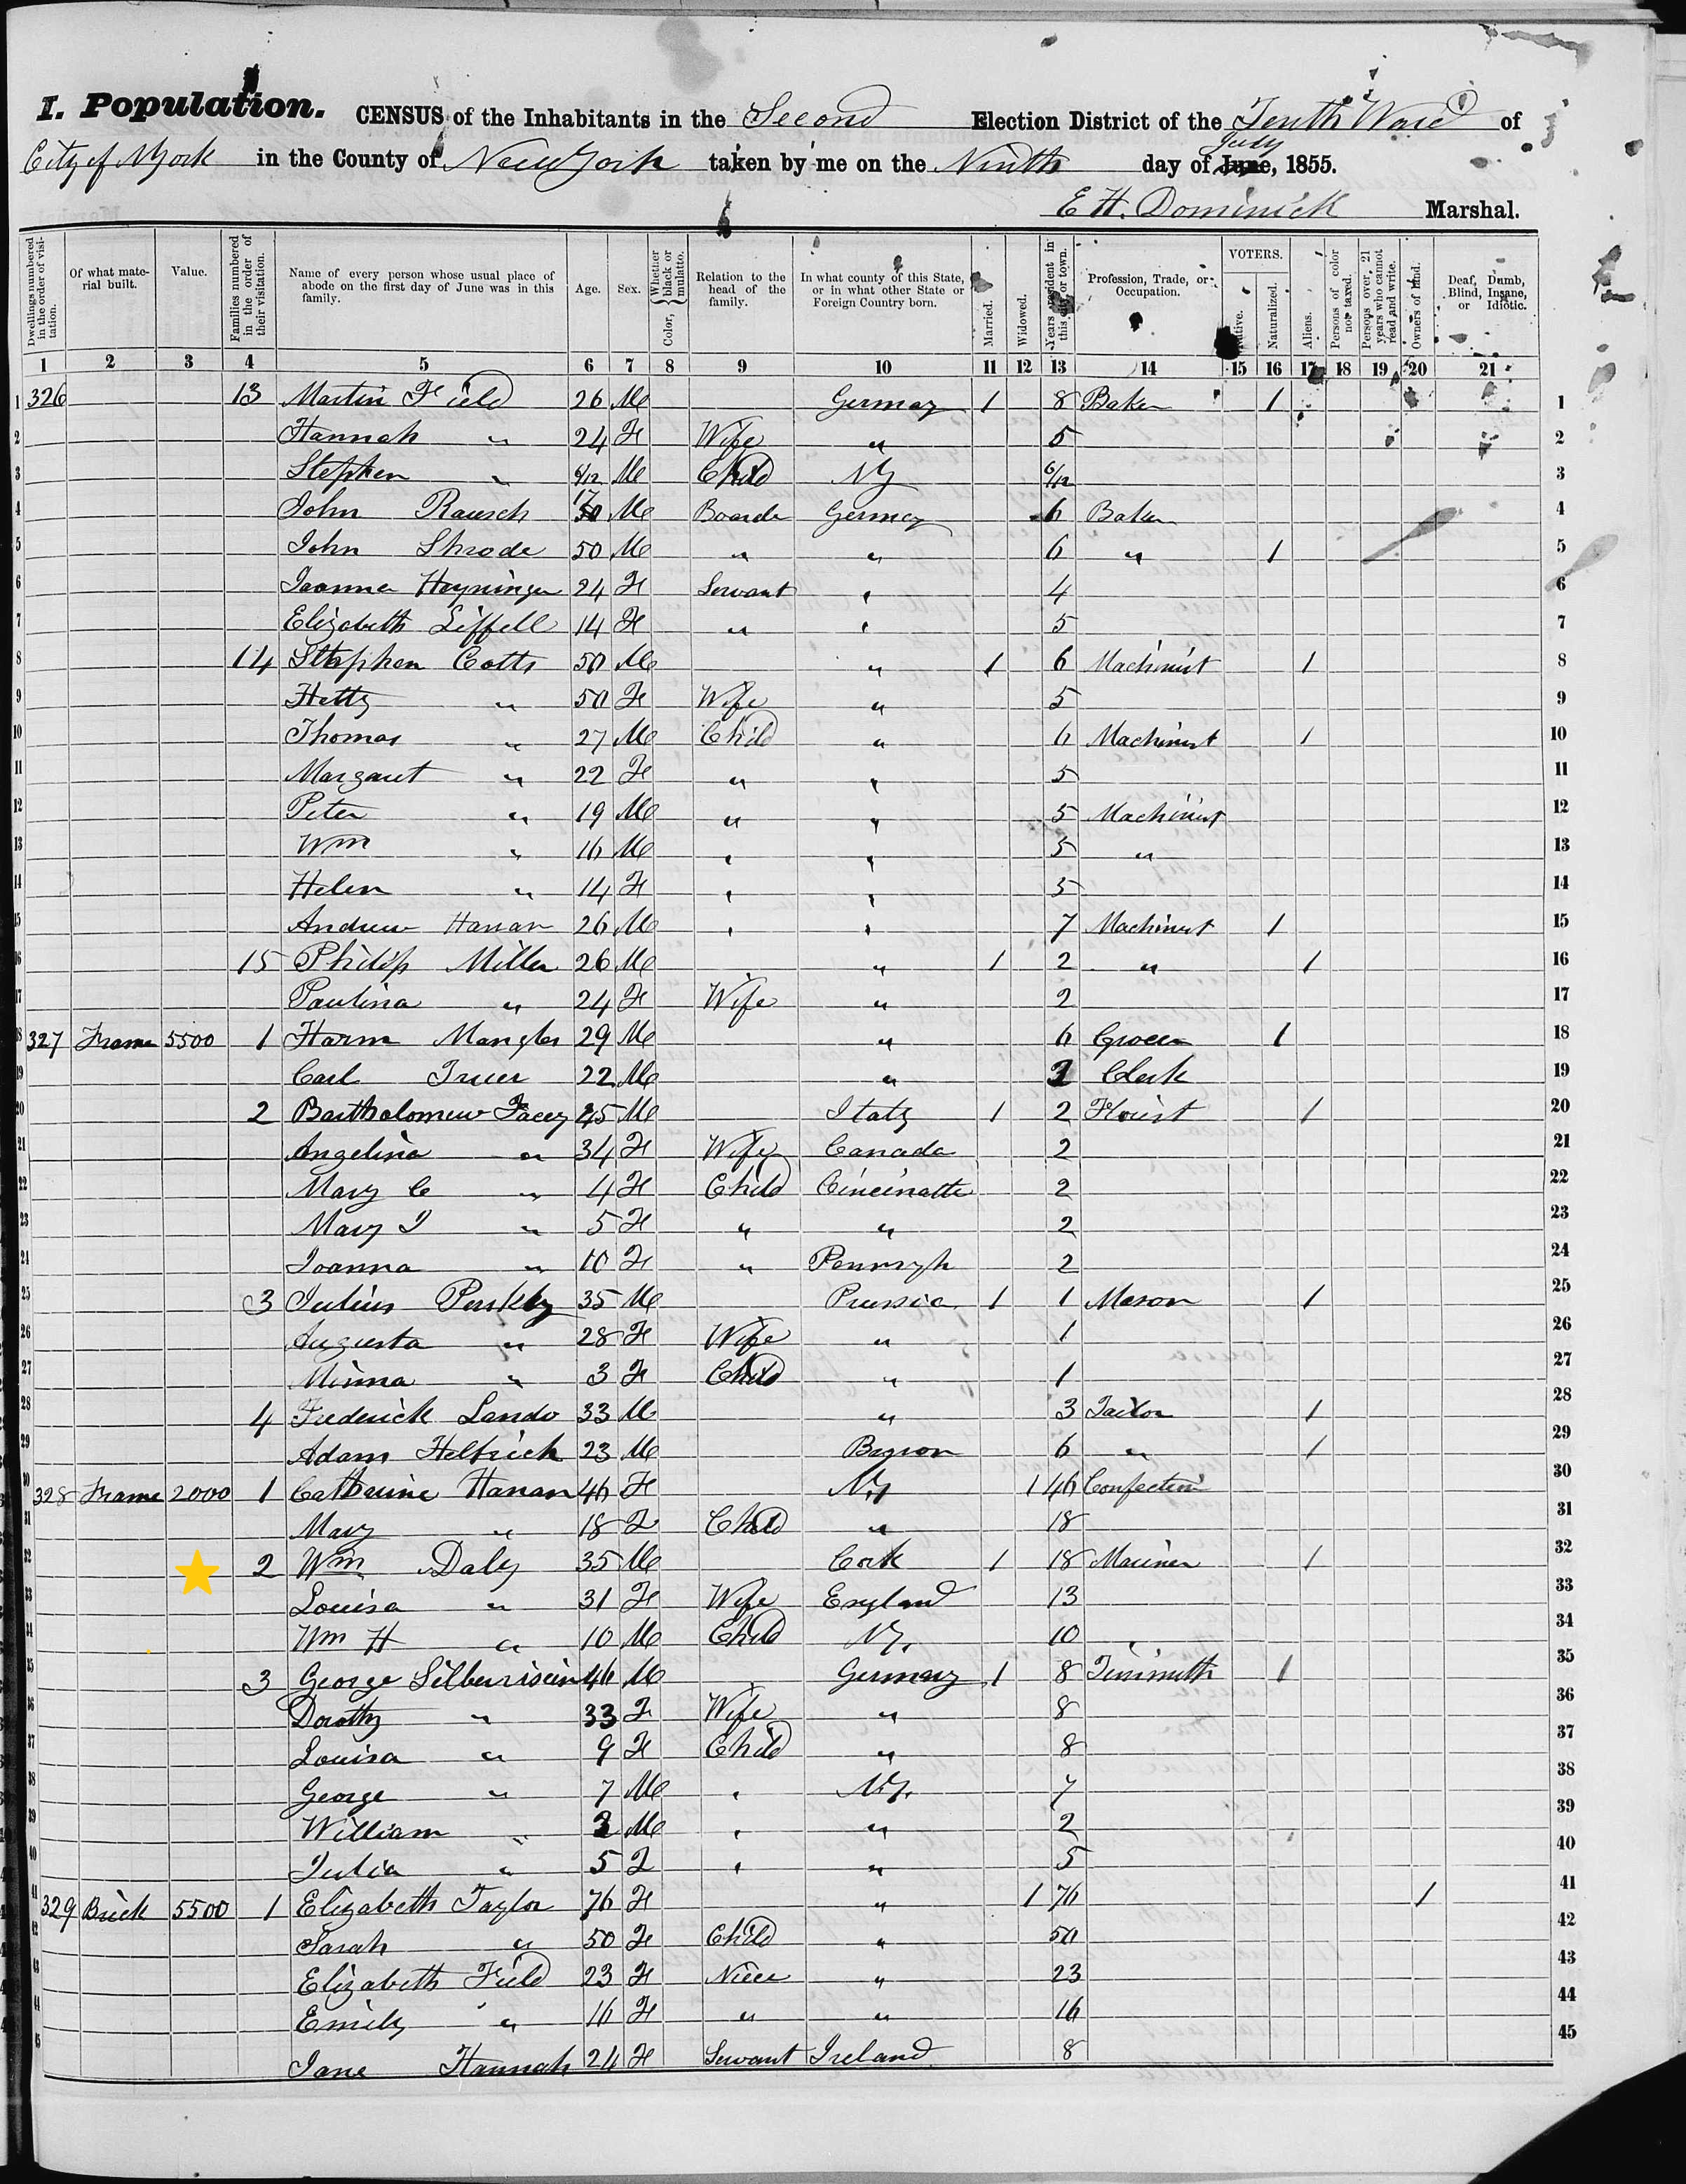 I. Population. CENSUS of the Inhabitants in the Second Election District of the Tenth Ward of
City of NYork in the County of New York taken by me on the Ninth day of June, July 1855.
E H. Dominick Marshal.
Dwellings numbered in the order of visitation. Of what material built. Value. Families numbered in the order of their visitation. Name of every person whose usual place of abode on the first day of June was in this family. Age. Sex. Color, { Whether black or mulatto. Relation to the head of the family. In what county of this State, or in what other State or Foreign Country born. Married. Widowed. Years resident in this city or town. Profession, Trade, or Occupation. VOTERS. Native. Naturalized. Aliens. Persons of color not taxed. Persons over 21 years who cannot read and write. Owners of land. Deaf, Dumb, Blind, Insane, or Idiotic.
1 2 3 4 5 6 7 8 9 10 11 12 13 14 15 16 17 18 19 20 21
1 326 13 Martin Field 26 M Germay 1 8 Baker 1 1
2 Hannah " 24 F Wife " 5 2
3 Stephen " 6/12 M Child NY 6/12 3
4 John Rausch 17 M Boarde Germay 6 Baker 4
5 John Shrode 50 M " " 6 " 1 5
6 Joanna Heyninger 24 F Servant " 4 6
7 Elizabeth Liffell 14 F " " 5 7
8 14 Stephen Cotts 50 M " 1 6 Machinist 1 8
9 Hetty " 50 F Wife " 5 9
10 Thomas " 27 M Child " 6 Machinist 1 10
11 Margaret " 22 F " " 5 11
12 Peter " 19 M " " 5 Machinist 12
13 Wm " 16 M " " 5 " 13
14 Helen " 14 F " " 5 14
15 Andrew Hanan 26 M " " 7 Machinist 1 15
16 15 Philip Miller 26 M " 1 2 " 1 16
17 Paulina " 24 F Wife " 2 17
18 327 Frame 5500 1 Harm Mangles 29 M " 6 Grocer 1 18
19 Carl Truer 22 M " 2 Clerk 19
20 2 Bartholomew Facey 45 M Italy 1 2 Florist 1 20
21 Angelina " 34 F Wife Canada 2 21
22 Mary C " 4 F Child Cincinatti 2 22
23 Mary J " 5 F " " 2 23
24 Joanna " 10 F " Pennsyh 2 24
25 3 Julius Perskby 35 M Prussia 1 1 Mason 1 25
26 Augusta " 28 F Wife " 1 26
27 Minna " 3 F Child " 1 27
28 4 Frederick Lando 33 M " 3 Tailor 1 28
29 Adam Helbrich 23 M Bayron 6 " 1 29
30 328 Frame 2000 1 Catherine Hanan 46 F NY 1 46 Confection 30
31 Mary " 18 F Child " 18 31
32 2 Wm Daly 35 M Cork 1 18 Mariner 1 32
33 Louisa " 31 F Wife England 13 33
34 Wm H " 10 M Child NY. 10 34
35 3 George Silberrisein 46 M Germany 1 8 Tinsmith 1 35
36 Dorothy " 33 F Wife " 8 36
37 Louisa " 9 F Child " 8 37
38 George " 7 M " NY. 7 38
39 William " 2 M " " 2 39
40 Julia " 5 F " " 5 40
41 329 Brick 5500 1 Elizabeth Taylor 76 F " 1 76 1 41
42 Sarah " 50 F Child " 50 42
43 Elizabeth Field 23 F Niece " 23 43
44 Emily " 16 F " " 16 44
45 Jane Hannah 24 F Servant Ireland 8 45